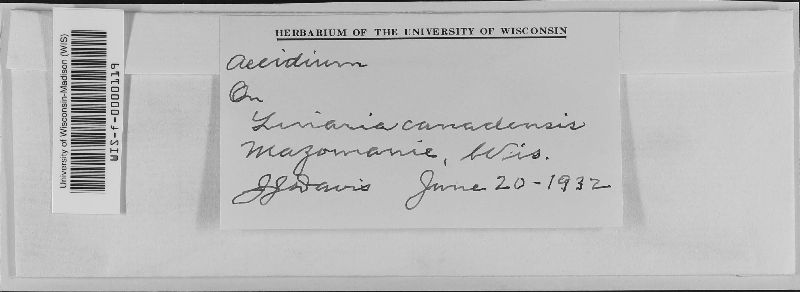 HERBARIUM OF THE UNIVERSITY OF WISCONSIN
Aecidium
On
Linaria canadensis
Mazomanie, Wis.
JJDavis June 20-1932
University of Wisconsin-Madison (WIS)
WIS-f-0000119